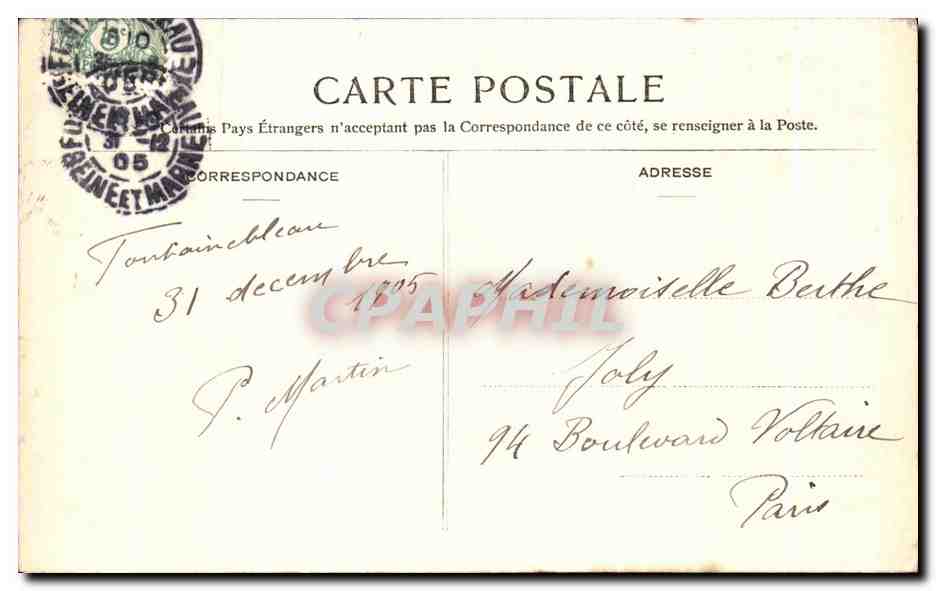 CARTE POSTALE
Certains Pays Étrangers n'acceptant pas la Correspondance de ce côté, se renseigner à la Poste.
CORRESPONDANCE
ADRESSE
Fontainebleau
31 decembre
1905
P. Martin
Mademoiselle Berthe
Joly
94 Boulevard Voltaire
Paris
31 - 12
05
SEINE ET MARNE
CPAPHIL